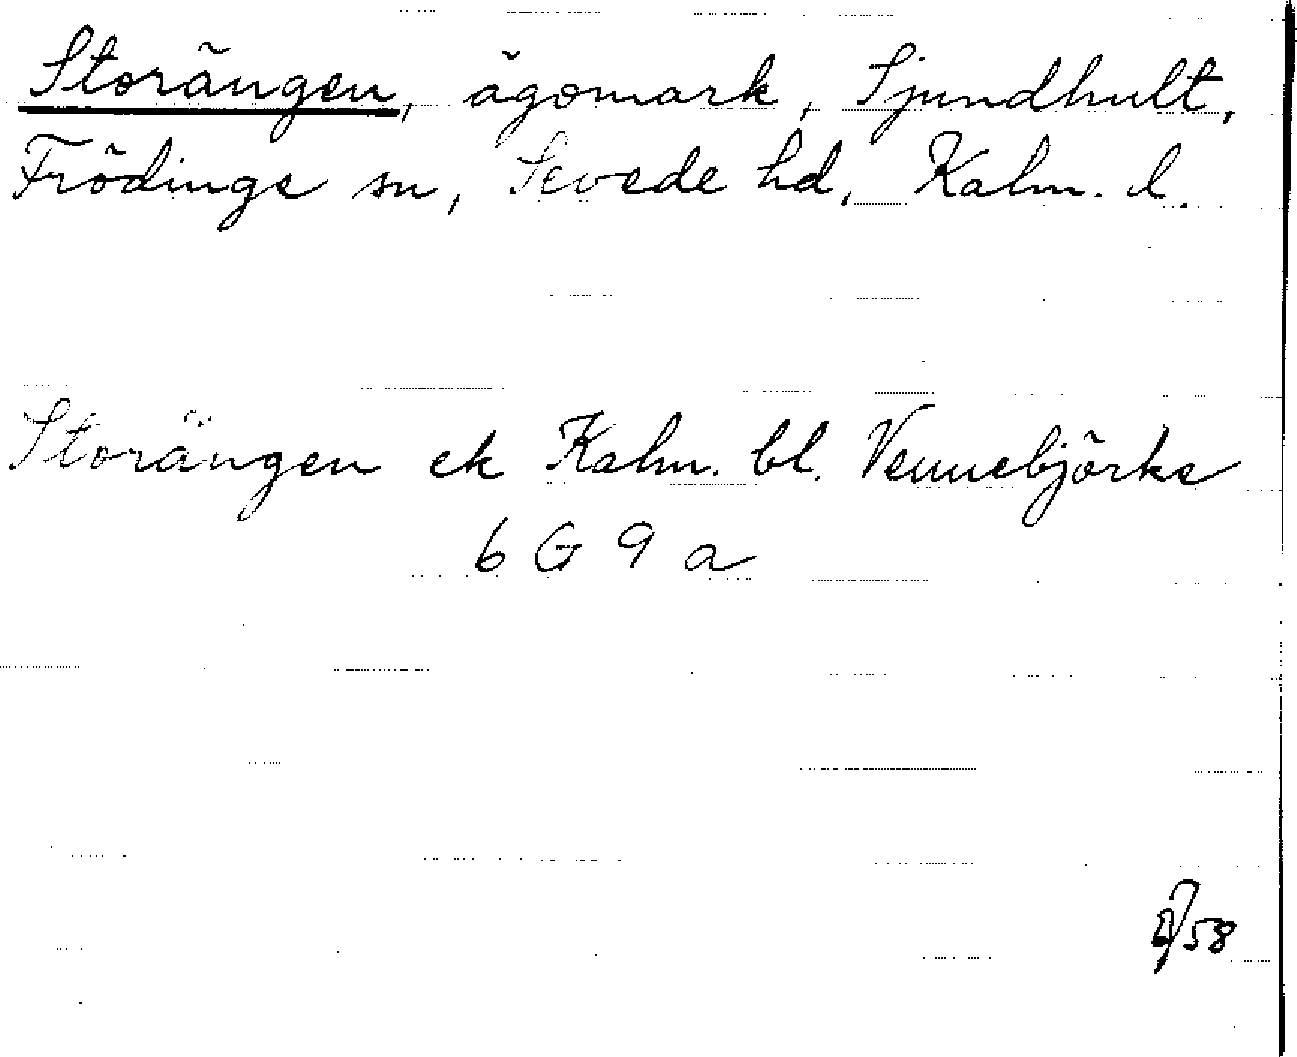 Storängen, ägomark, Sjundhult,
Frödinge sn, Sevede hd, Kalm. l.
Storängen ek Kalm. bl. Vennebjörke
6 G 9 a
58